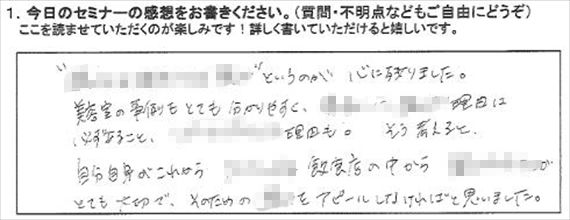 1. 今日のセミナーの感想をお書きください。(質問・不明点などもご自由にどうぞ)
ここを読ませていただくのが楽しみです!詳しく書いていただけると嬉しいです。
" "というのが 心に残りました。
美容室の事例もとても分かりやすく、 理由は
必ずあること、 理由も。 そう考えると、
自分自身がこれから 飲食店の中から が
とても大切で、そのための をアピールしなければと思いました。